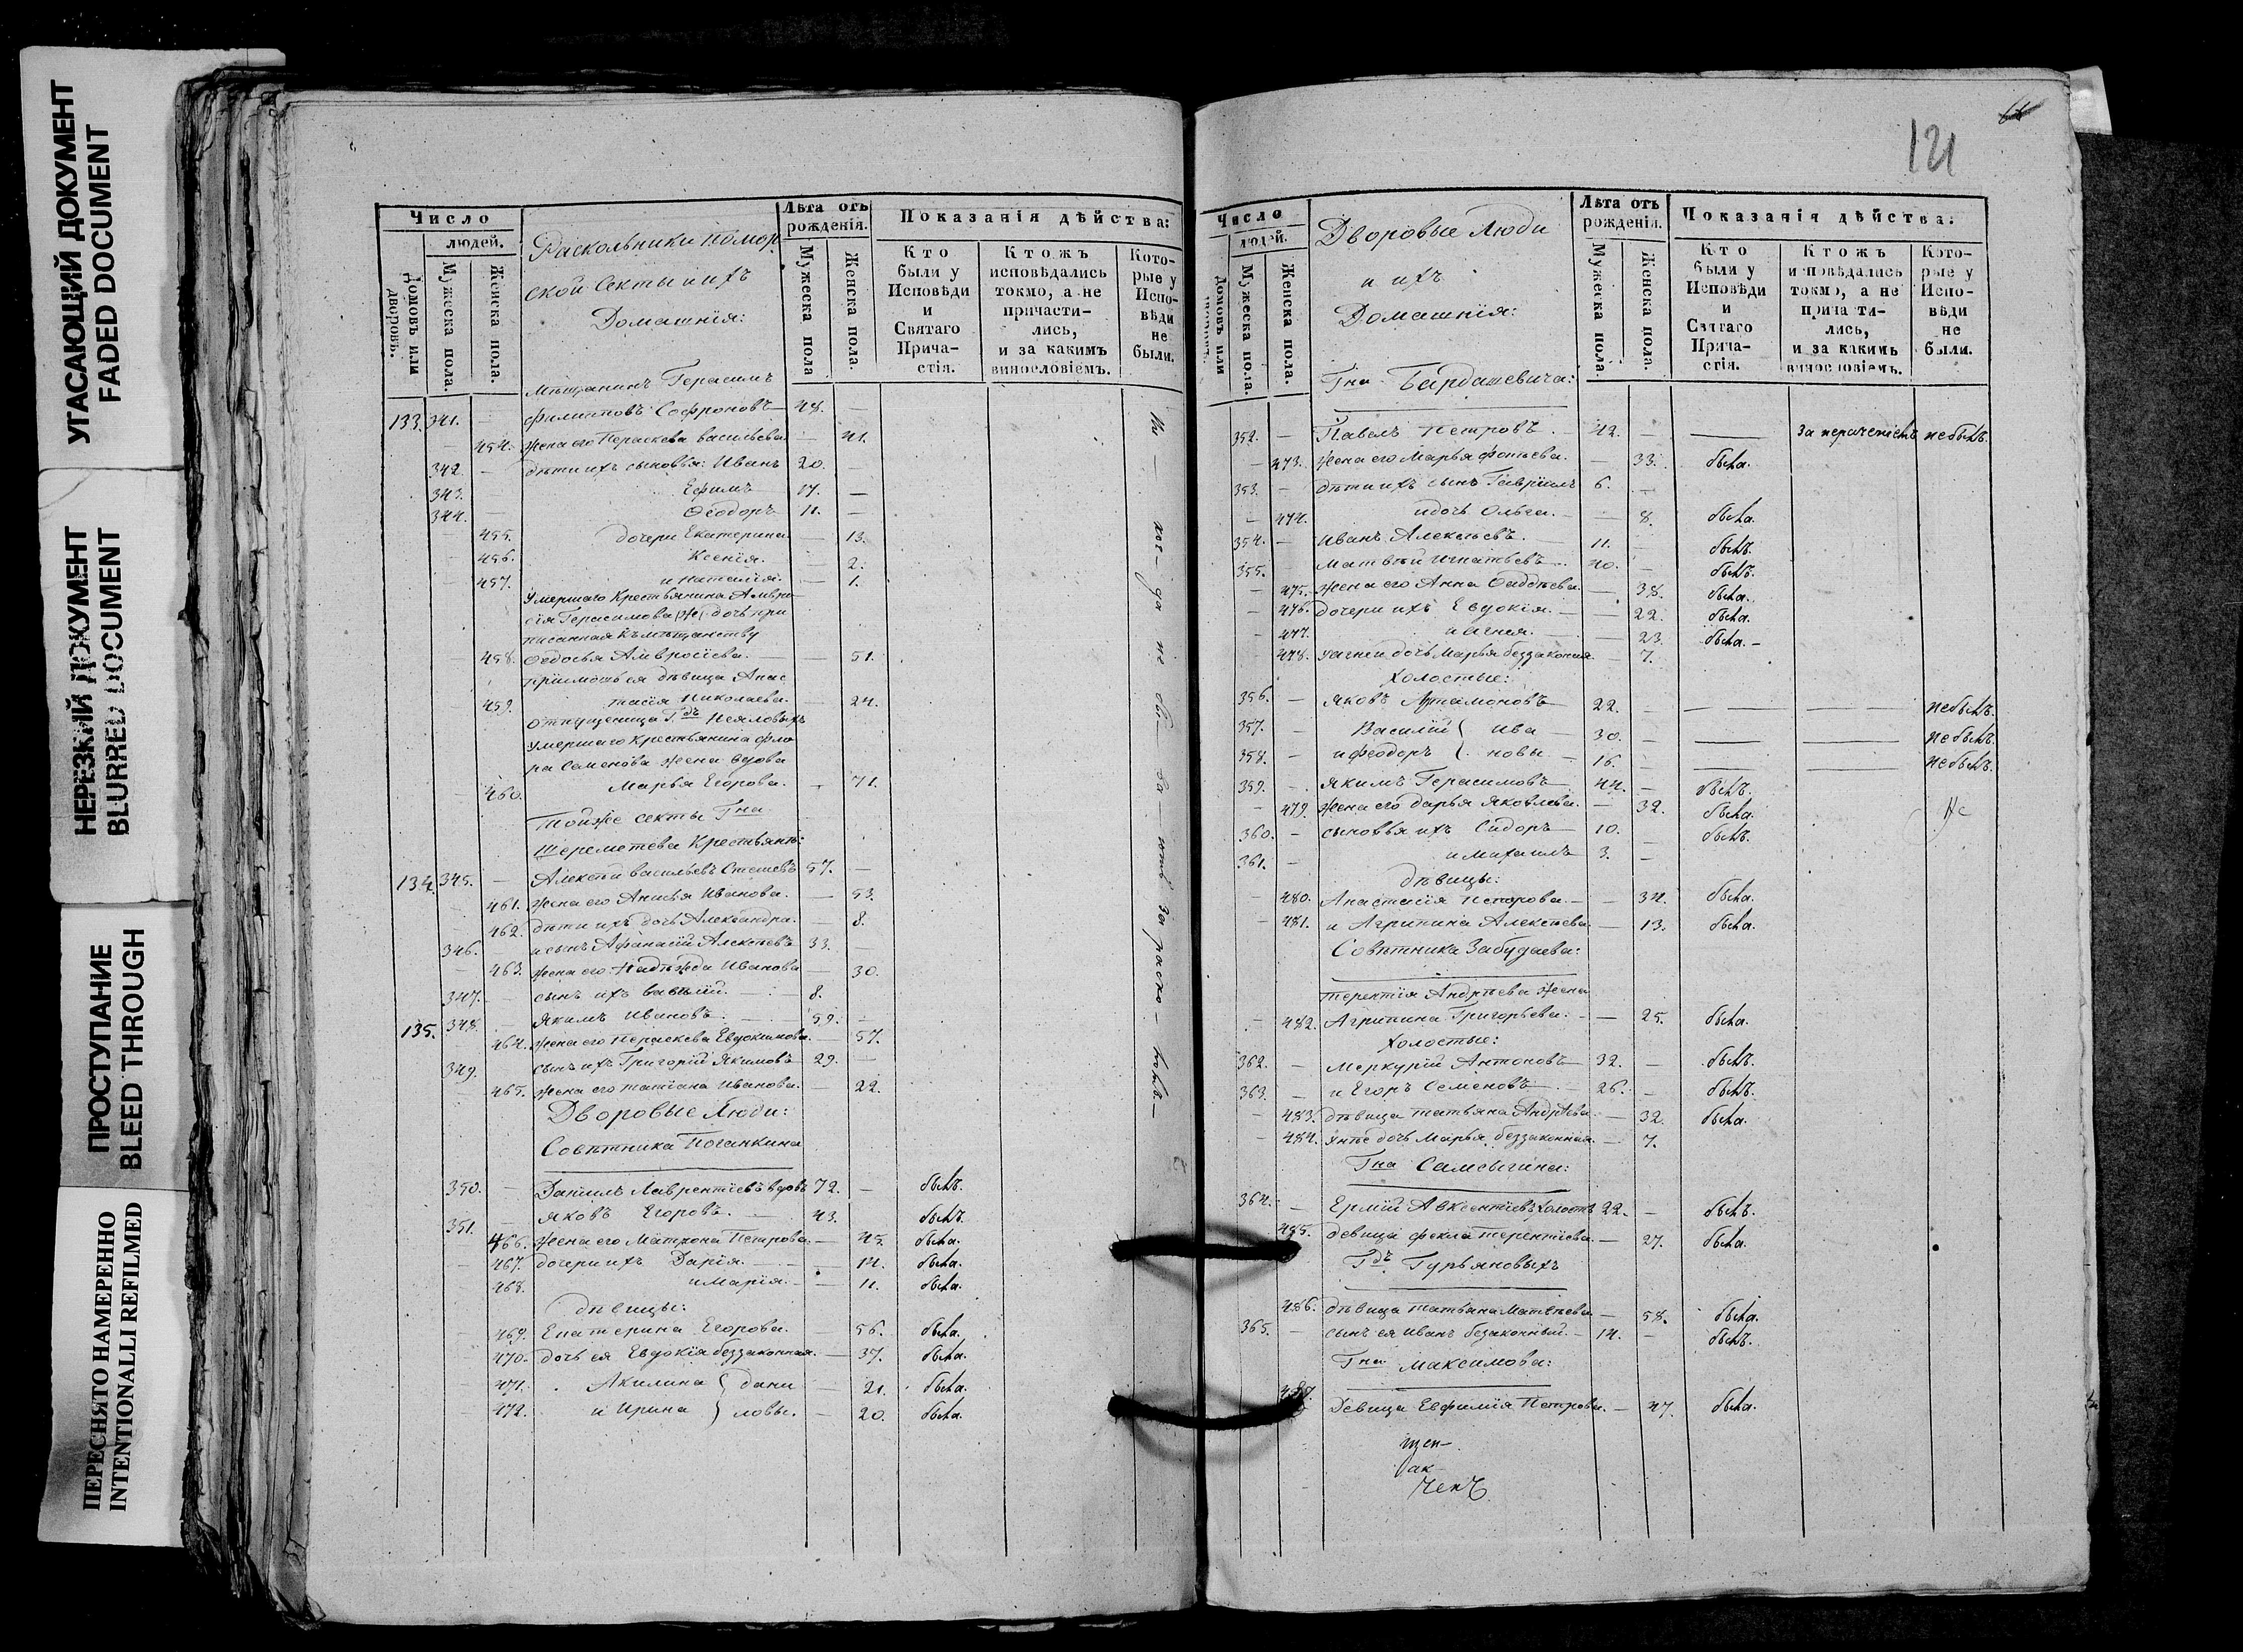 УГАСАЮЩИЙ ДОКУМЕНТ
FADED DOCUMENT
НЕРЕЗКИЙ ДОКУМЕНТ
BLURRED DOCUMENT
ПРОСТУПАНИЕ
BLEED THROUGH
ПЕРЕСНЯТО НАМЕРЕННО
INTENTIONALLI REFILMED
Число
людей.
Домовъ или дворовъ.
Мужеска пола.
Женска пола.
Раскольники помор
ской секты и ихъ
Домашнія:
Лѣта отъ рожденія.
Мужеска пола
Женска пола.
Показанія дѣйства:
Кто были у Исповѣди и Святаго Прича-стія.
Ктожъ исповѣдались токмо, а не причасти-лись, и за какимъ винословіемъ.
Кото-рые у Испо-вѣди не были.
Мѣщанинъ Герасимъ
133. 341. — Филипповъ Софроновъ 48. —
— 454. жена его Параскева Васильева — 41.
342. — дѣти ихъ сыновья: Иванъ 20.
343. — Ефимъ 17. —
344. — Ѳеодоръ 11. —
— 455. дочери Екатерина — 13.
— 456. Ксенія. — 2.
— 457. и Наталія. — 1.
Умершаго Крестьянина Амвро
сія Герасимова дочь при
писанная къ мѣщанству
— 458. Ѳедосья Амвросіева. — 51.
дѣвица Анас
— 459. тасія Николаева. — 24.
умершаго крестьянина Фло
ра Семенова жена вдова
— 460. Марья Егорова. — 71.
Тойже секты Гна
Шереметева Крестьянъ:
134. 345. — Алексѣй Васильевъ 57. —
— 461. жена его Анисья Иванова. — 53.
— 462. дѣти ихъ дочь Александра. — 8.
346. и сынъ Афанасій Алексѣевъ 33. —
— 463. жена его Надѣжда Иванова — 30.
347. — сынъ ихъ Василій. — 8.
135. 348. — Якимъ Ивановъ. — 59. —
464. жена его Параскева Евдокимова. — 57.
349. сынъ ихъ Григорій Якимовъ 29. —
— 465. жена его Татіана Иванова. — 22.
Дворовые Люди:
Совѣтника Поганкина
350. — Даніилъ Лаврентіевъ вдовъ 72. — былъ.
351. — Яковъ Егоровъ. — 43. былъ.
466. жена его Матрона Петрова. — 45. была.
— 467. дочери ихъ Дарія. — 14. была.
— 468. и Марія. — 11. была.
дѣвицы:
— 469. Екатерина Егорова. — 56. была.
— 470. дочь ея Евдокія беззаконная. — 37. была.
— 471. Акилина } дани 21. была.
— 472. и Ирина } ловы. — 20. была.
121
Число
людей.
Домовъ или
Мужеска пола.
Женска пола.
Дворовые Люди
и ихъ
Домашнія:
Лѣта отъ рожденія.
Мужеска пола.
Женска пола.
Показанія дѣйства:
Кто были у Исповѣди и Святаго Прича-стія.
Ктожъ исповѣдались токмо, а не прича ти-лись, и за какимъ винословіемъ.
Кото-рые у Испо-вѣди не были.
Гна Бардашевича:
352. — Павелъ Петровъ. — 42. — за нераченіемъ небылъ.
— 473. жена его Марья Фотьева. — 33. была.
353. — дѣти ихъ сынъ Гавріилъ 6. —
— 474. и дочь Ольга. — 8. была.
354. — Иванъ Алексѣевъ. 11. — былъ.
355. — Матвѣй Игнатьевъ 40. — былъ.
— 475. жена его Анна Ѳаддѣева. — 38. была.
— 476. дочери ихъ Евдокія. — 22. была.
— 477. и Агнія. — 23. была. —
— 478. у Агніи дочь Марья беззаконная. — 7.
Холостые:
356. — Яковъ Артамоновъ 22. — небылъ.
357. — Василій } Ива 30. — небылъ.
358. — и Феодоръ } новы 16. — небылъ.
359. — Якимъ Герасимовъ 44. — былъ.
— 479. жена его Дарья Яковлева. — 32. была.
360. — сыновья ихъ Сидоръ 10. былъ.
361. — и Михаилъ 3. —
дѣвицы:
— 480. Анастасія Петрова. — 34. была.
— 481. и Агрипина Алексѣева — 13. была.
Совѣтника Забудаева:
Терентія Андрѣева жена
— 482. Агрипина Григорьева. — 25. была.
Холостые:
362. — Меркурій Антоновъ 32. — былъ.
363. — и Егоръ Семеновъ 26. — былъ.
— 483. дѣвица Татьяна Андрѣева — 32. была.
— 484. дочь Марья беззаконная. — 7.
Гна Самсыгина:
364. — Ермій Авксентіевъ холостъ 22. — былъ.
485. девица Фекла Терентіева. — 27. была.
Гдъ Гурьяновыхъ
486. дѣвица Татьяна Матвѣева — 58. была.
365. — сынъ ея Иванъ беззаконный. — 14. — былъ.
Гна Максимова:
487. Девица Евфимія Петрова. — 47. была.